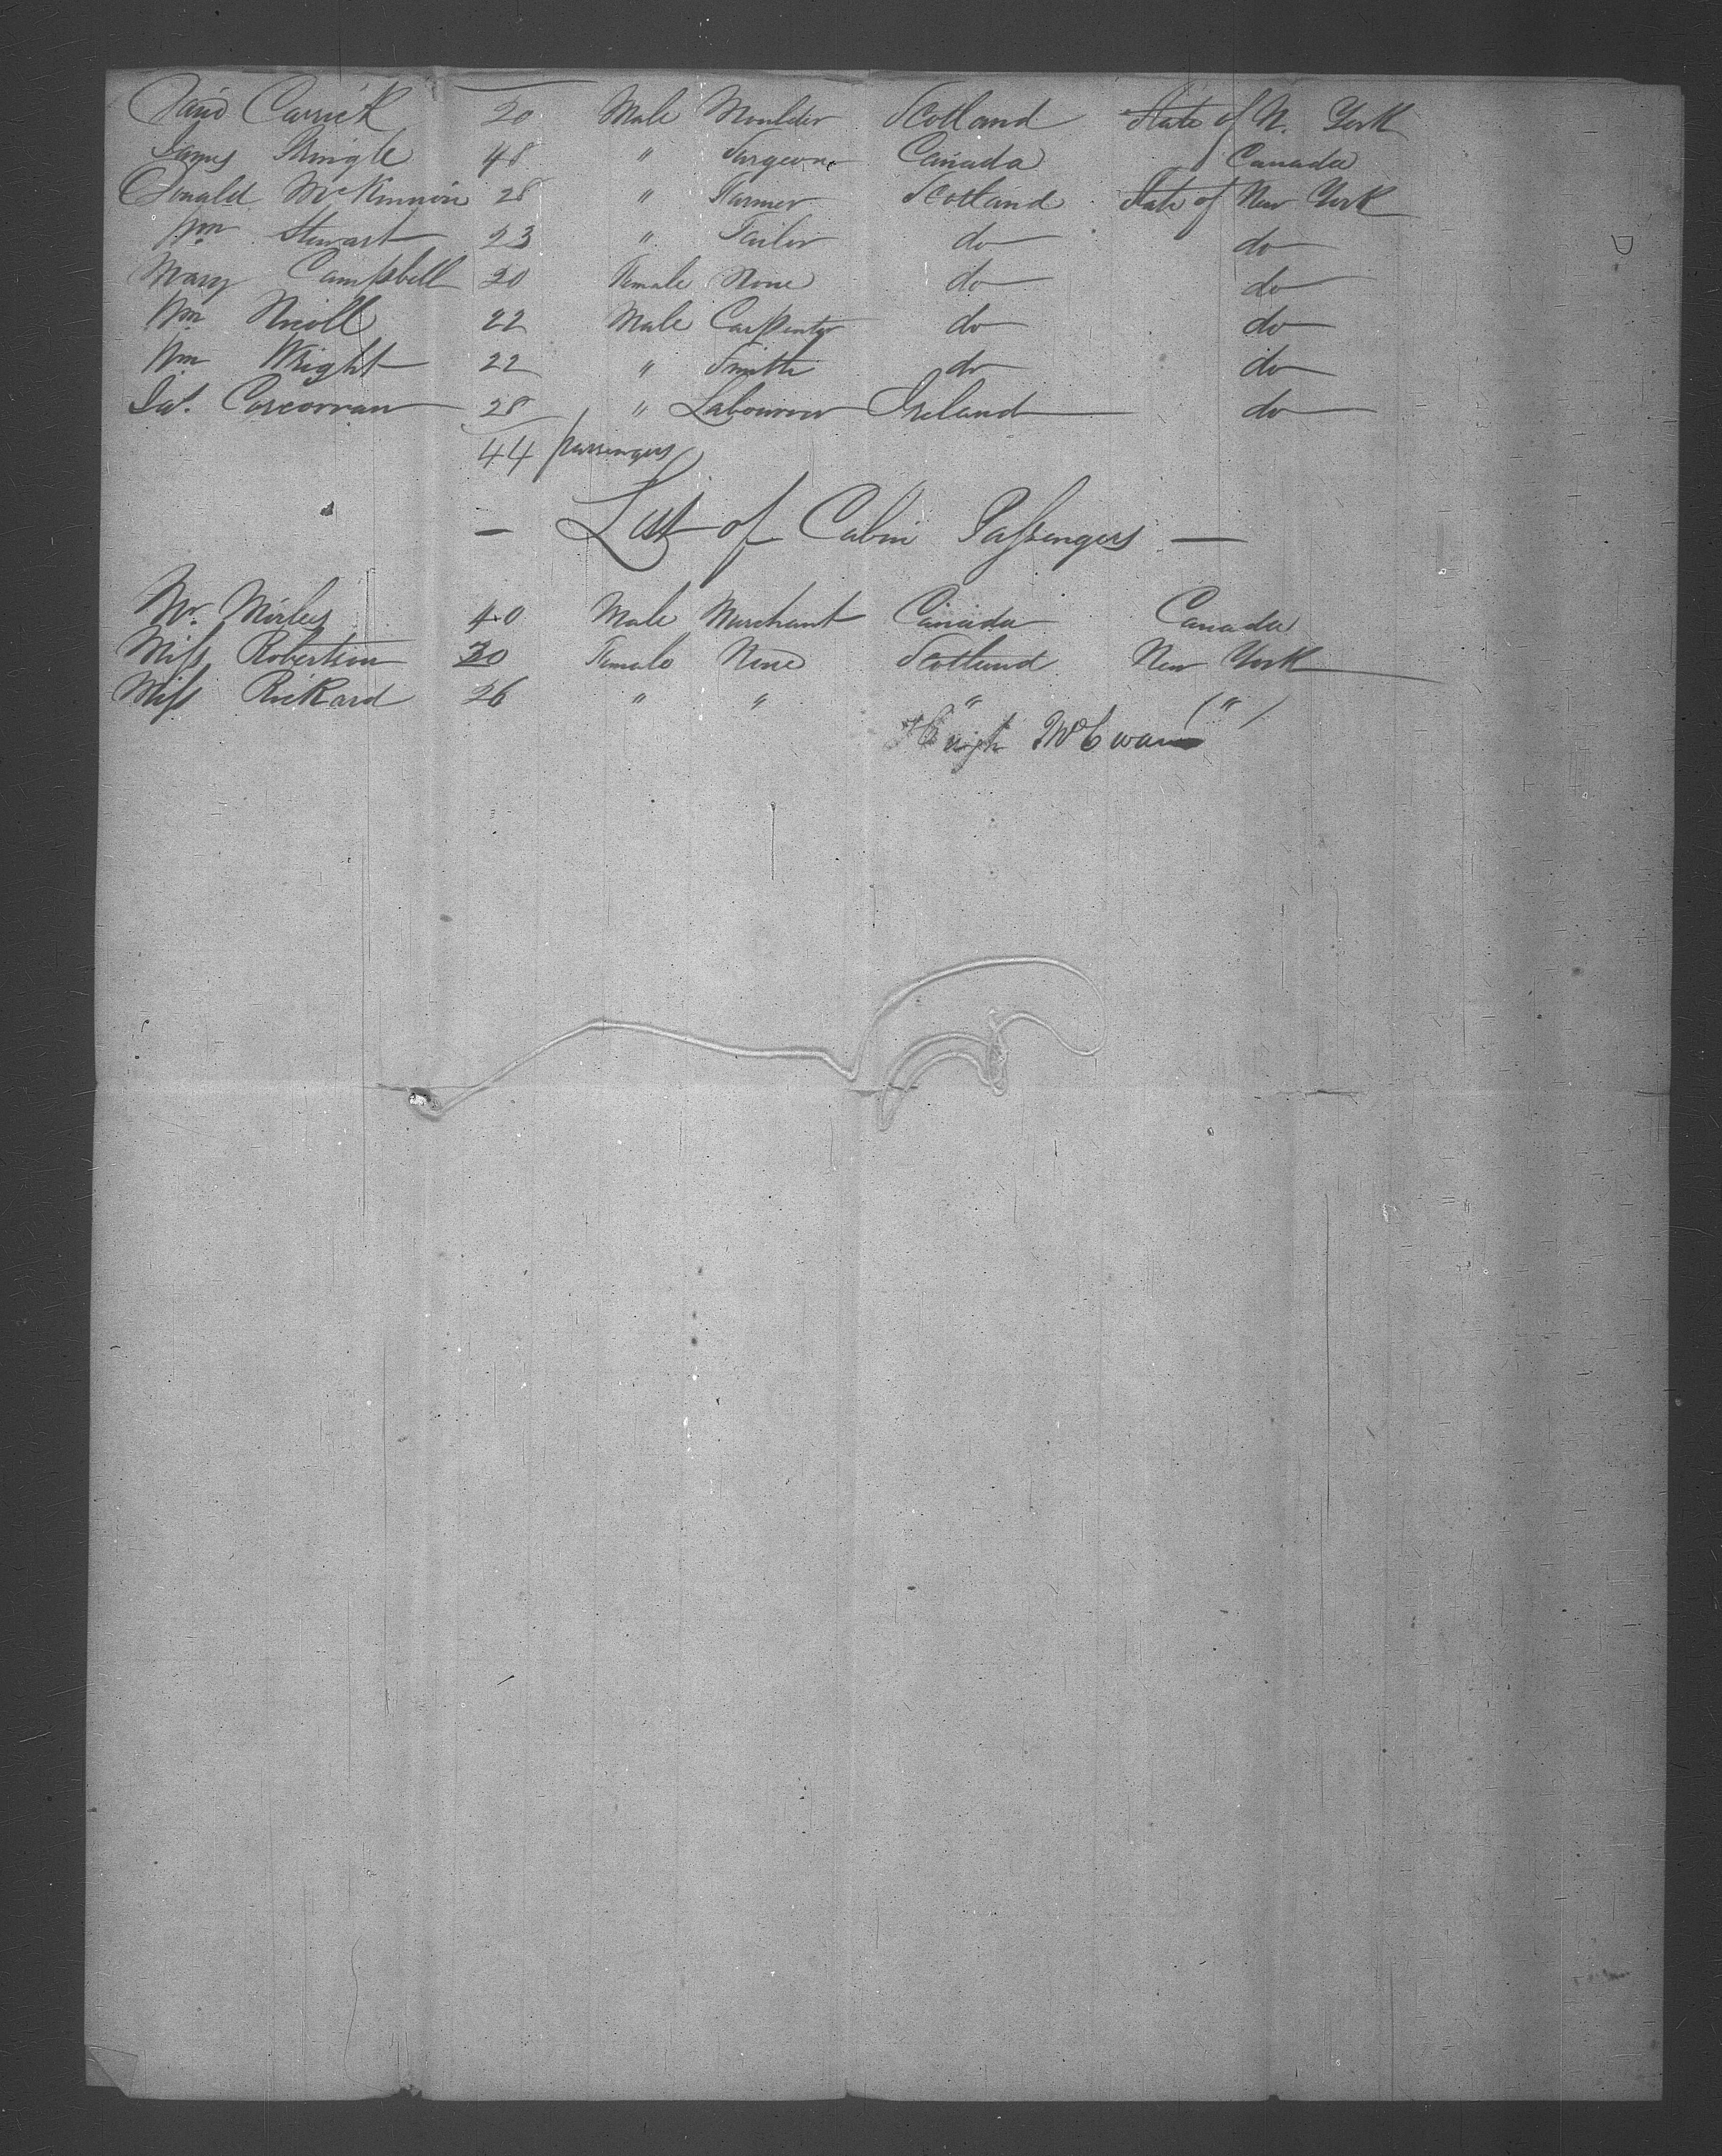 David Carrick 20 Male Moulder Scotland State of N. York
James Pringle 48 " Surgeon Canada Canada
Donald McKinnon 28 " Farmer Scotland State of New York
Wm Stewart 23 " Tailor do do
Mary Campbell 20 Female None do do
Wm Nicoll 22 Male Carpenter do do
Wm Wright 22 " Smith do do
Jas. Corcorran 28 " Labourer Ireland do
44 passengers
— List of Cabin Passengers —
Mr. 40 Male Merchant Canada Canada
Miss Robertson 30 Female None Scotland New York
Miss Rickard 26 " " " "
Hugh McEwan